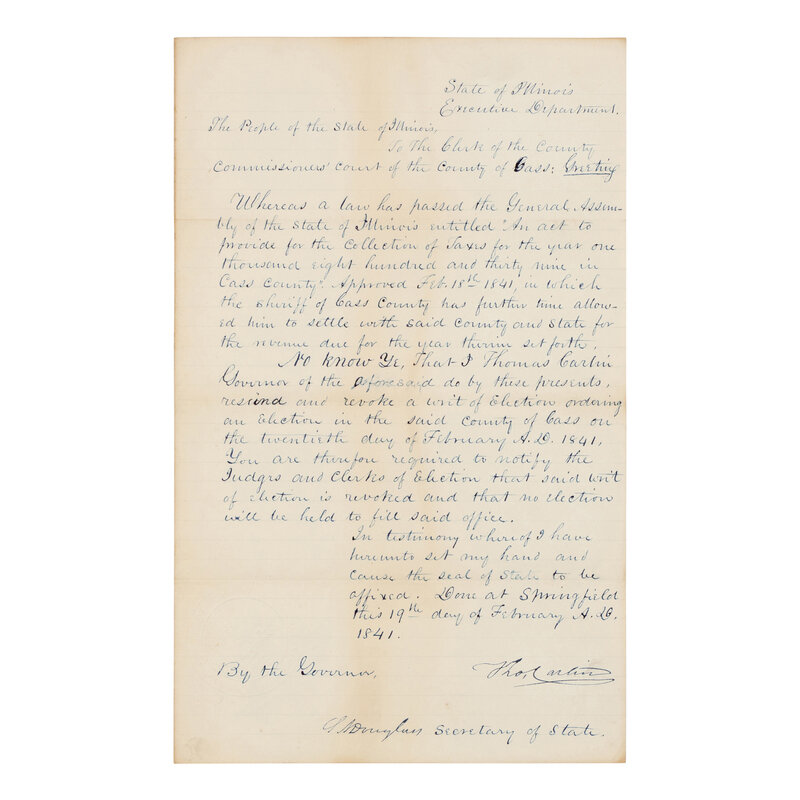 State of Illinois
Executive Department.
The People of the State of Illinois,
To The Clerk of the County
Commissioners' Court of the County of Cass: Greeting
Whereas a law has passed the General Assem-
bly of the State of Illinois entitled "An act to
provide for the Collection of Taxes for the year one
thousand eight hundred and thirty nine in
Cass County". Approved Feb. 18th 1841, in which
the Sheriff of Cass County has further time allow-
ed him to settle with said County and State for
the revenue due for the year therein set forth.
No know Ye, That I Thomas Carlin
Governor of the aforesaid do by these presents,
rescind and revoke a writ of Election ordering
an Election in the said County of Cass on
the twentieth day of February A.D. 1841,
You are therefore required to notify the
Judges and Clerks of Election that said writ
of Election is revoked and that no Election
will be held to fill said office.
In testimony whereof I have
hereunto set my hand and
cause the seal of State to be
affixed. Done at Springfield
this 19th day of February A.D.
1841.
By the Governor,
Tho. Carlin
S A Douglass Secretary of State.